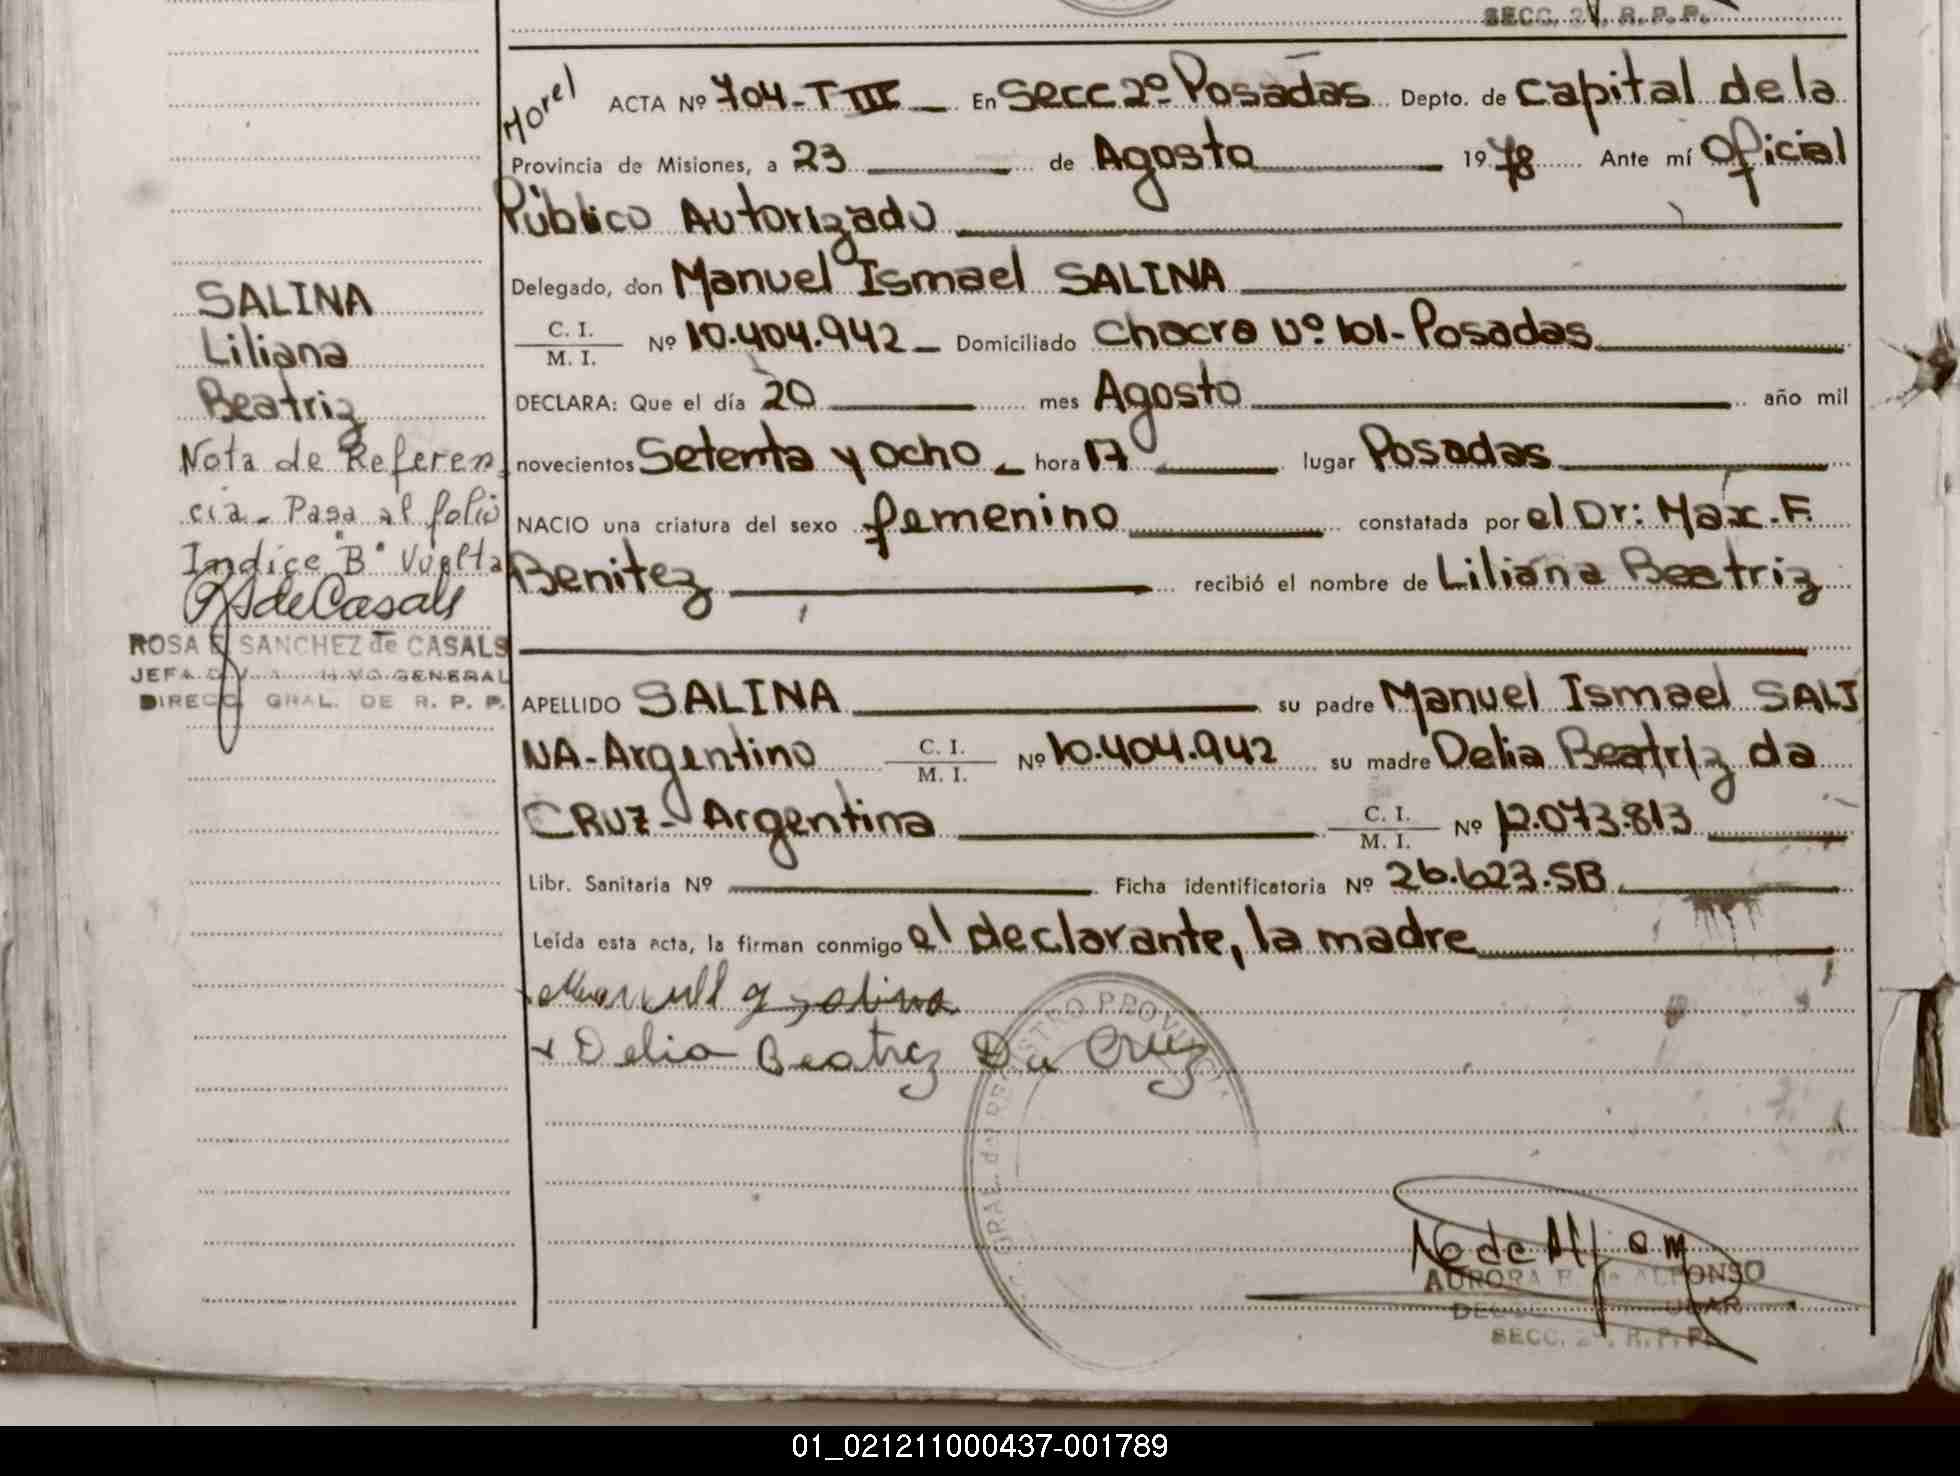 SECC. 2ª, R. P. P.
Morel
ACTA Nº 704-T III En Secc 2º Posadas Depto. de Capital de la
Provincia de Misiones, a 23 de Agosto 1978 Ante mí Oficial
Público Autorizado
Delegado, don Manuel Ismael SALINA
C. I.
M. I. Nº 10.404.942 Domiciliado Chacra Nº 101-Posadas
DECLARA: Que el día 20 mes Agosto año mil
novecientos Setenta y ocho hora 17 lugar Posadas
NACIO una criatura del sexo femenino constatada por el Dr: Max. F.
Benitez recibió el nombre de Liliana Beatriz
APELLIDO SALINA su padre Manuel Ismael SALI
NA-Argentino C. I.
M. I. Nº 10.404.942 su madre Delia Beatriz da
CRUZ-Argentina C. I.
M. I. Nº 12.073.813
Libr. Sanitaria Nº Ficha identificatoria Nº 26.623.SB
Leída esta acta, la firman conmigo el declarante, la madre
+ Delia Beatriz Da Cruz
SALINA
Liliana
Beatriz
Nota de Referen
cia. Pasa al folio
Indice "B" Vuelta
RSdeCasals
ROSA E. SANCHEZ de CASALS
JEFA GENERAL
DIRECC. GRAL. DE R. P. P.
GRAL. de REGISTRO PROVINCIAL
AURORA de ALFONSO
SECC. 2ª, R. P. P.
01_021211000437-001789